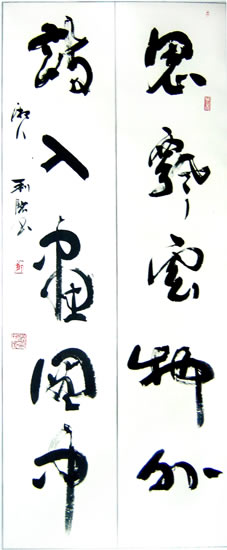 思飄雲物外
詩入畫圖中
湘人